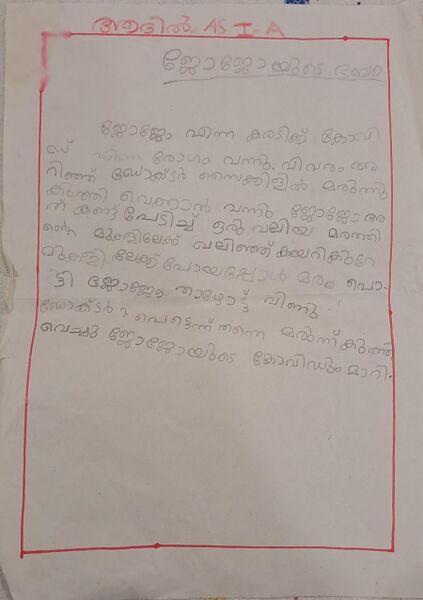 ആദിൽ AS I-A
ജോജോയുടെ ഭയം
ജോജോ എന്ന കരടിക്ക് കോവി
ഡ് എന്ന രോഗം വന്നു. വിവരം അ
റിഞ്ഞ് ഡോക്ടർ സൈക്കിളിൽ മരുന്നു
കുത്തി വെക്കാൻ വന്നു ജോജോ അ
ത് കണ്ട് പേടിച്ച് ഒരു വലിയ മരത്തി
ന്റെ മുകളിലേക്ക് വലിഞ്ഞ് കയറി
മുകളി ലേക്ക് പോയപ്പോൾ മരം പൊ-
ട്ടി ജോജോ താഴോട്ട് വീണു
ഡോക്ടർ പെട്ടെന്ന് തന്നെ മരുന്ന് കുത്തി
വെച്ചു ജോജോയുടെ കോവിഡും മാറി.